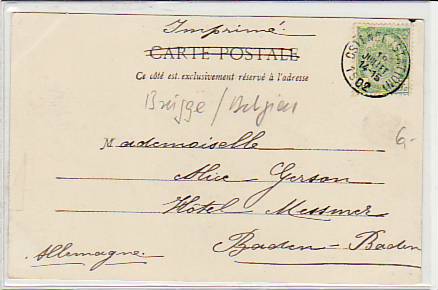 Imprimé.
CARTE POSTALE
Ce côté est exclusivement réservé à l'adresse
OSTENDE (STATION)
JUILLET
1902
Brügge / Belgien
6,-
Mademoiselle
Alice Gerson
Hotel Messmer
Baden-Baden
Allemagne.